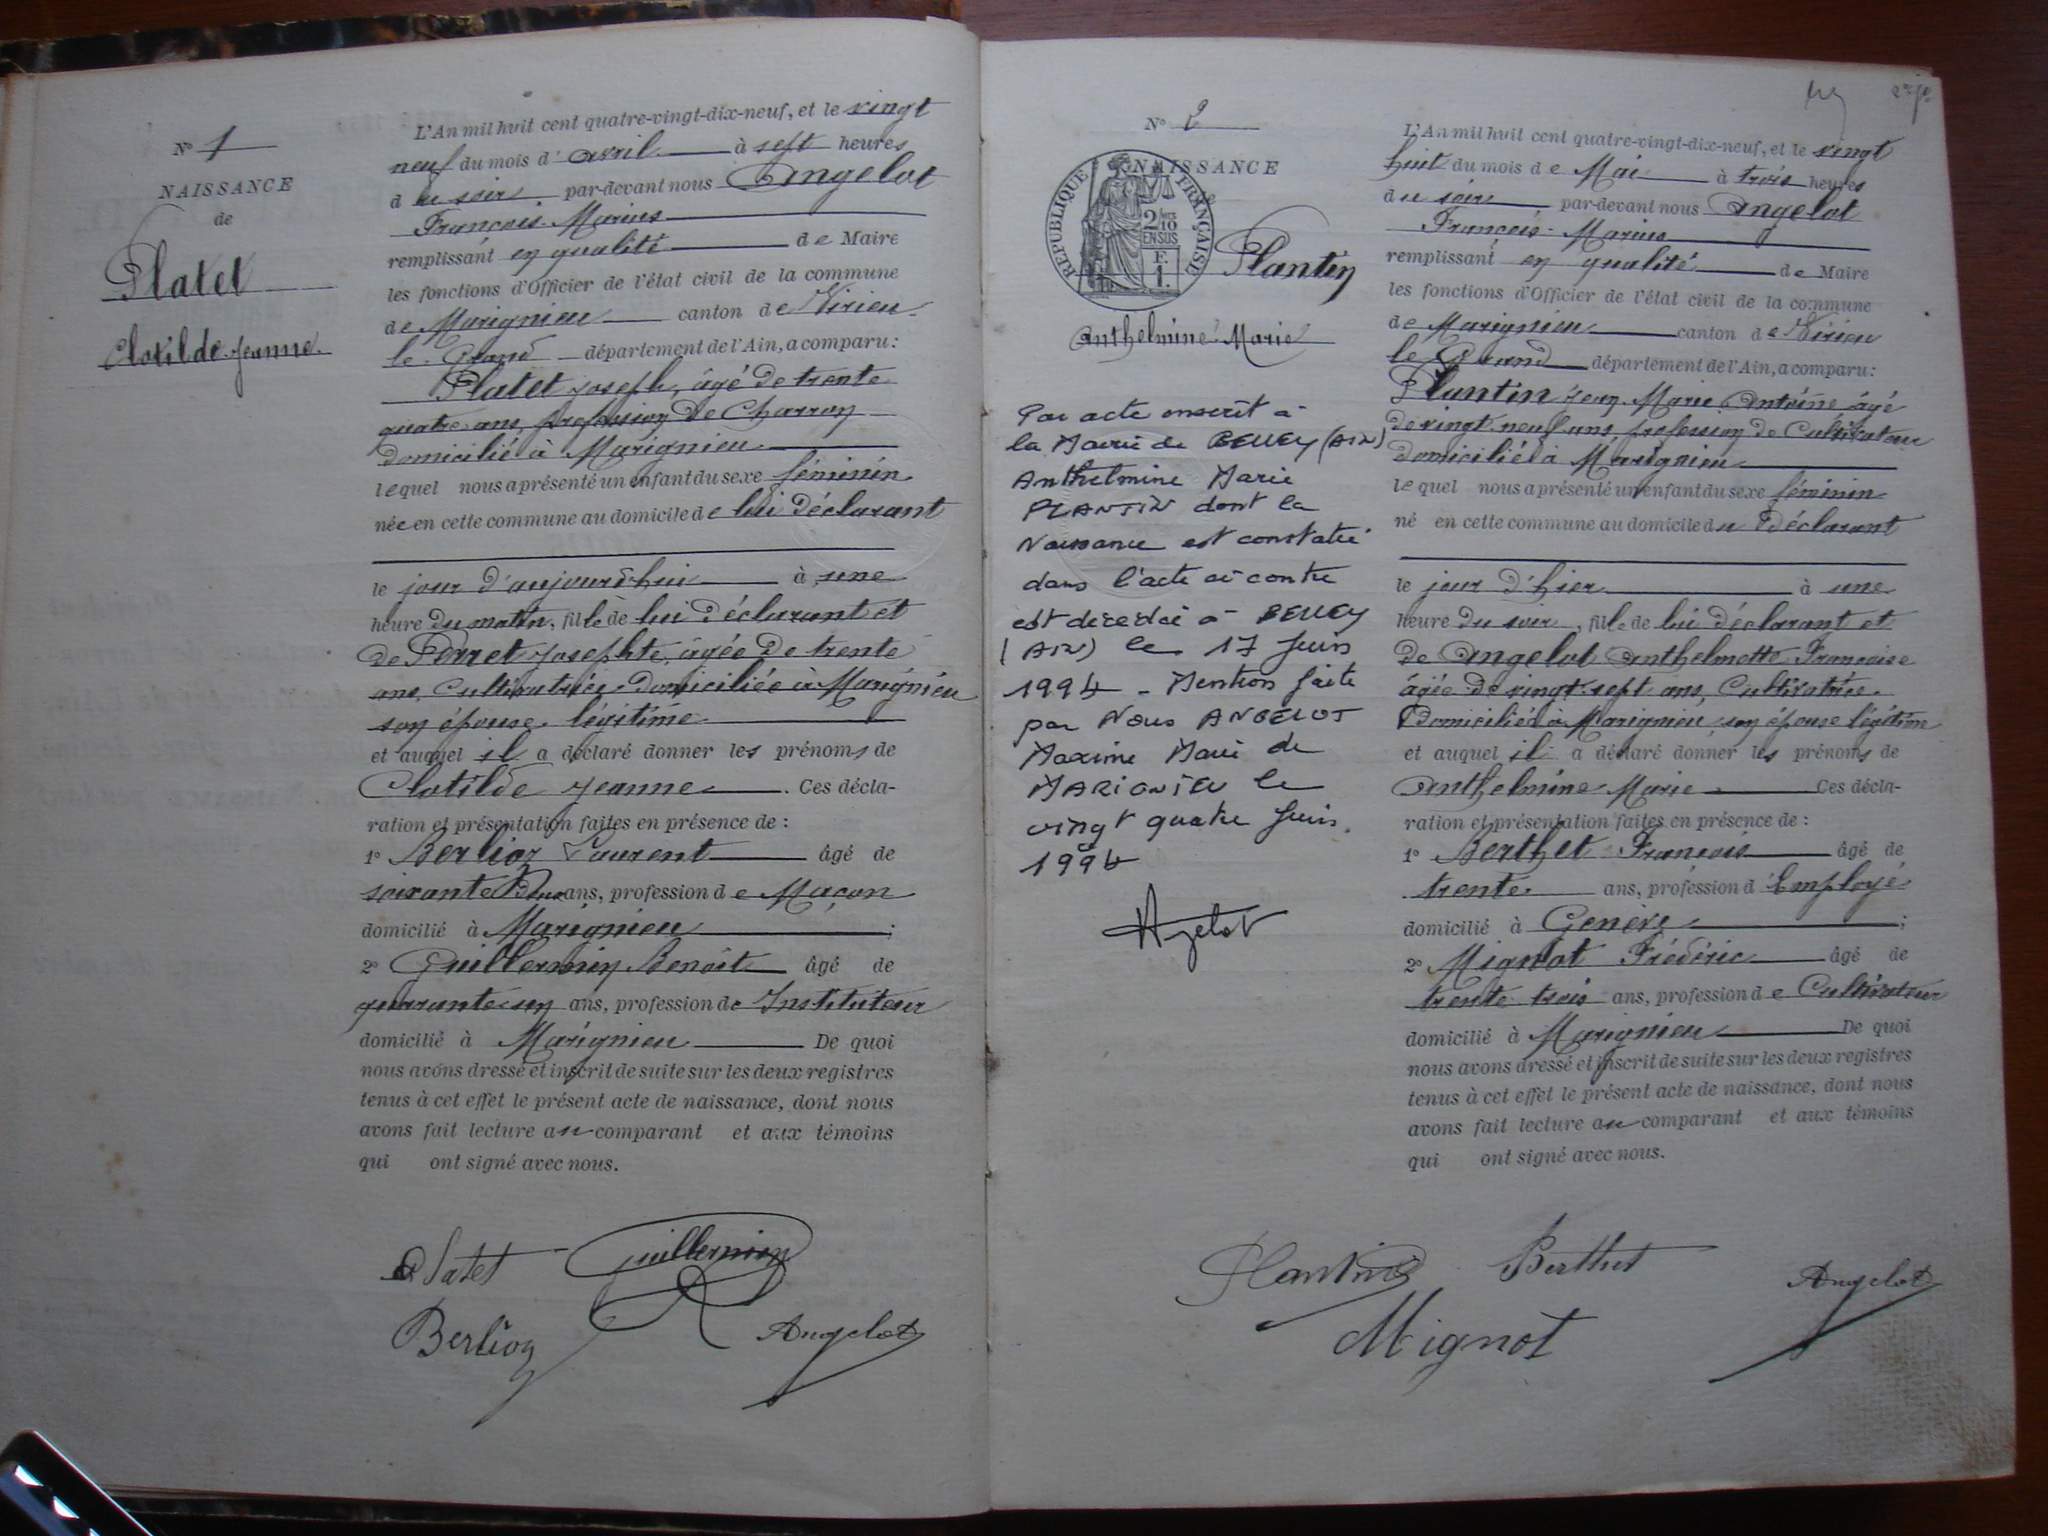 N° 1
NAISSANCE
de
Platet
Clotilde Jeanne
L'An mil huit cent quatre-vingt-dix-neuf, et le vingt
neuf du mois d'avril à sept heures
du soir par-devant nous Angelot
François Marius
remplissant en qualité de Maire
les fonctions d'Officier de l'état civil de la commune
de Marignieu canton de Virieu
le Grand département de l'Ain, a comparu :
Platet Joseph, âgé de trente
quatre ans, profession de Charron
domicilié à Marignieu
lequel nous a présenté un enfant du sexe féminin
née en cette commune au domicile de lui déclarant
le jour d'aujourd'hui à une
heure du matin, fille de lui déclarant et
de Perret Josephte, âgée de trente
ans, Cultivatrice domiciliée à Marignieu
son épouse légitime
et auquel il a déclaré donner les prénoms de
Clotilde Jeanne. Ces décla-
ration et présentation faites en présence de :
1° Berlioz Laurent âgé de
soixante Deux ans, profession de Maçon
domicilié à Marignieu ;
2° Guillermin Benoit âgé de
quarante un ans, profession de Instituteur
domicilié à Marignieu De quoi
nous avons dressé et inscrit de suite sur les deux registres
tenus à cet effet le présent acte de naissance, dont nous
avons fait lecture au comparant et aux témoins
qui ont signé avec nous.
Platet Guillermin
Berlioz Angelot
2
N° 2
NAISSANCE
de
RÉPUBLIQUE FRANÇAISE
2/10
EN SUS
F.
1.
Plantin
Anthelmine Marie
Par acte inscrit à
la Mairie de BELLEY (AIN)
Anthelmine Marie
PLANTIN dont la
Naissance est constatée
dans l'acte ci contre
est décédée à BELLEY
(AIN) le 17 Juin
1994 - Mention faite
par Nous ANGELOT
Maxime Maire de
MARIGNIEU le
vingt quatre Juin
1994
Angelot
L'An mil huit cent quatre-vingt-dix-neuf, et le vingt
huit du mois de Mai à trois heures
du soir par-devant nous Angelot
François-Marius
remplissant en qualité de Maire
les fonctions d'Officier de l'état civil de la commune
de Marignieu canton de Virieu
le Grand département de l'Ain, a comparu :
Plantin Jean Marie Antoine âgé
de vingt neuf ans profession de Cultivateur
domicilié à Marignieu
lequel nous a présenté un enfant du sexe féminin
né en cette commune au domicile du Déclarant
le jour d'hier à une
heure du soir, fille de lui déclarant et
de Angelot Anthelmette Françoise
âgée de vingt-sept ans, Cultivatrice
Domiciliée à Marignieu, son épouse légitime
et auquel il a déclaré donner les prénoms de
Anthelmine Marie Ces décla-
ration et présentation faites en présence de :
1° Berthet François âgé de
trente ans, profession d'Employé
domicilié à Genève ;
2° Mignot Frédéric âgé de
trente trois ans, profession de Cultivateur
domicilié à Marignieu De quoi
nous avons dressé et inscrit de suite sur les deux registres
tenus à cet effet le présent acte de naissance, dont nous
avons fait lecture au comparant et aux témoins
qui ont signé avec nous.
Plantin Berthet Angelot
Mignot